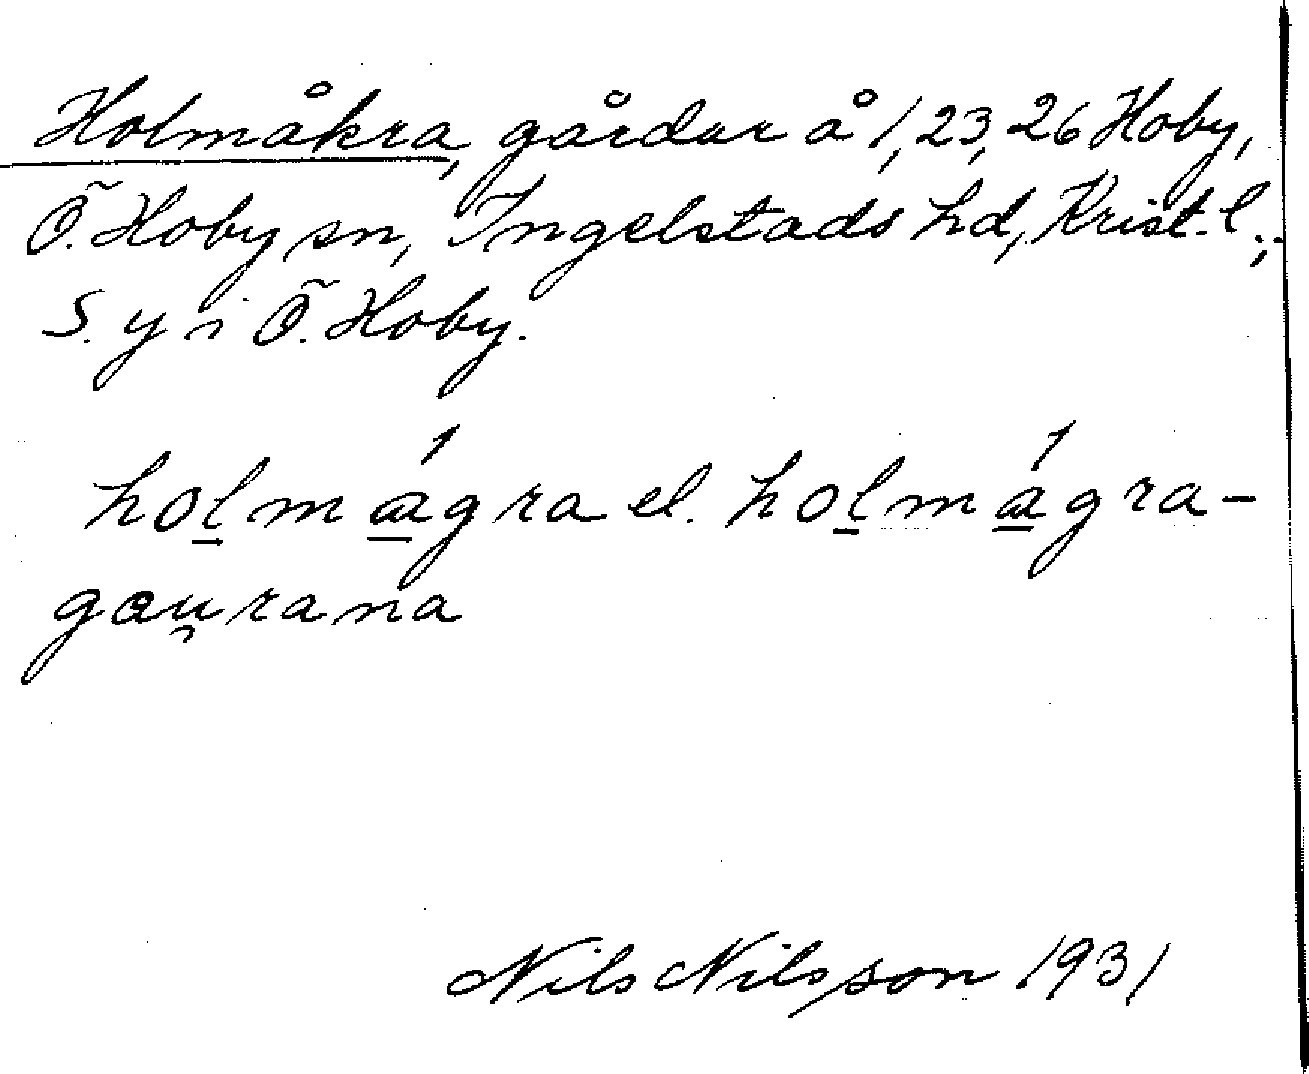 Holmåkra, gårdar å 1, 23, 26 Hoby,
Ö. Hoby sn, Ingelstads hd, Krist. l.;
S. y i Ö. Hoby.
holmágra el. holmágra-
gau̯rana
Nils Nilsson 1931